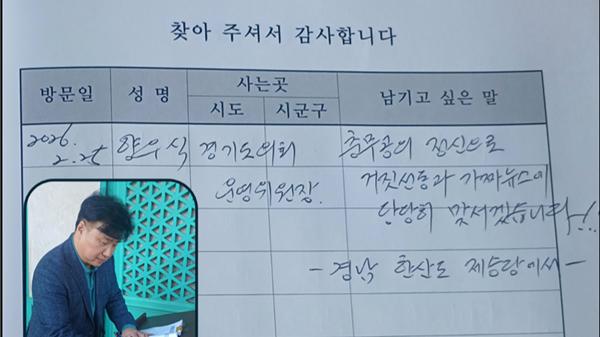 찾아 주셔서 감사합니다
방문일 성 명 사는곳 남기고 싶은 말
시도 시군구
2026. 양우식 경기도의회 충무공의 정신으로
2.25 운영위원장. 거짓선동과 가짜뉴스에
당당히 맞서겠습니다!!
- 경남 한산도 제승당에서 -